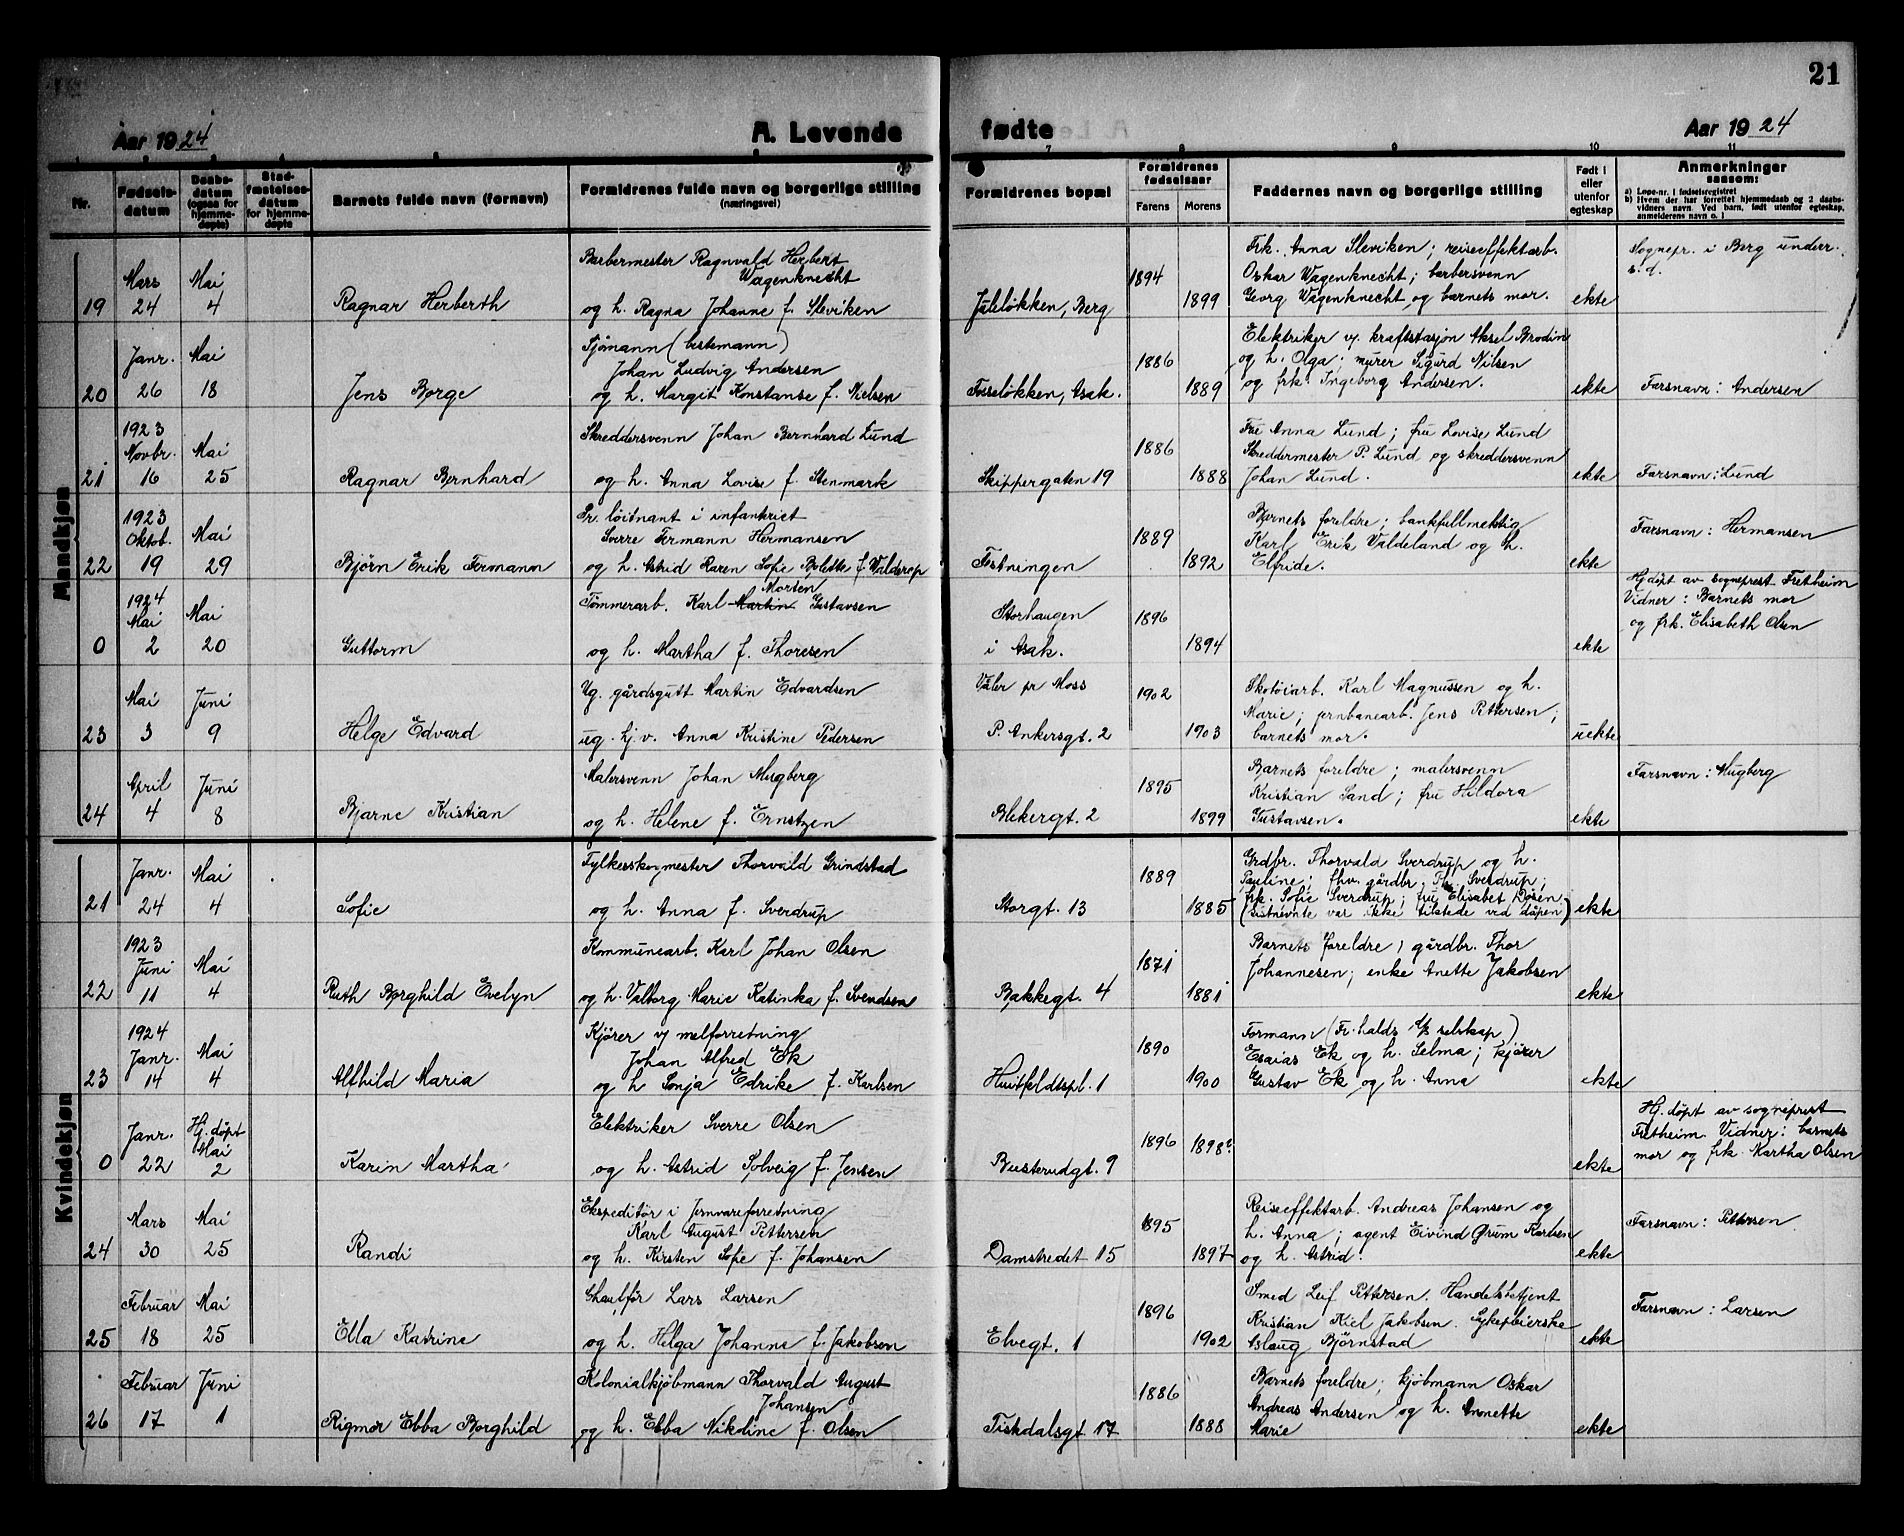 21
Aar 1924
A. Levende
fødte
Aar 1924
7 8 9 10 11
Nr.
Fødsels-datum
Daabs-datum (ogsaa for hjemme-døpte)
Stad-fæstelses-datum for hjemme-døpte
Barnets fulde navn (fornavn)
Forældrenes fulde navn og borgerlige stilling (næringsvei)
Forældrenes bopæl
Forældrenes fødselsaar
Farens
Morens
Faddernes navn og borgerlige stilling
Født i eller utenfor egteskap
Anmerkninger saasom:
a) Løpe-nr. i fødselsregistret
b) Hvem der har forrettet hjemmedaab og 2 daabs-vidners navn. Ved barn, født utenfor egteskap, anmelderens navn o. l
Mandkjøn
19
Mars 24
Mai 4
Ragnar Herberth
Barbermester Ragnvald Herbert
Wagenknecht
og h. Ragna Johanne f. Sleviken
Juleløkken, Berg
1894
1899
Frk. Anna Sleviken; reiseeffektarb.
Oskar Wagenknecht; barbersvenn
Georg Wagenknecht og barnets mor.
ekte
Sognepr. i Berg underr.
s.d.
20
Janr. 26
Mai 18
Jens Børge
Sjømann (bestemann)
Johan Ludvig Andersen
og h. Margit Konstanse f. Nielsen
Fosseløkken, Asak.
1886
1889
Elektriker v/ kraftstasjon Aksel Brodin
og h. Olga; murer Sigurd Nilsen
og frk. Ingeborg Andersen.
ekte
Farsnavn: Andersen
21
1923 Novbr. 16
Mai 25
Ragnar Bernhard
Skreddersvenn Johan Bernhard Lund
og h. Anna Lovise f. Stenmark
Skippergaten 19
1886
1888
Fru Anna Lund; fru Lovise Lund
Skreddermester P. Lund og skreddersvenn
Johan Lund.
ekte
Farsnavn: Lund
22
1923 Oktob. 19
Mai 29
Bjørn Erik Fermann
Pr. løitnant i infanteriet
Sverre Fermann Hermansen
og h. Astrid Karen Sofie Bolette f. Walderop
Festningen
1889
1892
Barnets foreldre; bankfullmektig
Karl Erik Valdeland og h.
Elfride.
ekte
Farsnavn: Hermansen
0
1924 Mai 2
Mai 20
Guttorm
Morten
Tømmerarb. Karl Martin Gustavsen
og h. Martha f. Thoresen
Storhaugen
i Asak.
1896
1894
ekte
Hj.døpt av sogneprest Fretheim
Vidner: Barnets mor
og frk. Elisabeth Olsen
23
Mai 3
Juni 9
Helge Edvard
Ug. gårdsgutt Martin Edvardsen
ug. hj.v. Anna Kristine Pedersen
Våler pr Moss
P. Ankersgt. 2
1902
1903
Skotøiarb. Karl Magnussen og h.
Marie; jernbanearb. Jens Pettersen;
barnets mor.
uekte
24
April 4
Juni 8
Bjarne Kristian
Malersvenn Johan Mugberg
og h. Helene f. Ernstzen
Blekergt. 2
1895
1899
Barnets foreldre; malersvenn
Kristian Sand; fru Hildora
Gustavsen.
ekte
Farsnavn: Mugberg
Kvindekjøn
21
Janr. 24
Mai 4
Sofie
Fylkesskogmester Thorvald Grindstad
og h. Anna f. Sverdrup
Storgt. 13
1889
1885
Grdbr. Thorvald Sverdrup og h.
Pauline; fhv. gårdbr. Th. Sverdrup;
frk. Sofie Sverdrup; fru Elisabet Døsen
(sistnevnte var ikke tilstede ved dåpen)
ekte
22
1923 Juni 11
Mai 4
Ruth Borghild Evelyn
Kommunearb. Karl Johan Olsen
og h. Valborg Marie Katinka f. Svendsen
Bakkegt. 4
1871
1881
Barnets foreldre; gårdbr. Thor
Johannesen; enke Anette Jakobsen
ekte
23
1924 Janr. 14
Mai 4
Alfhild Maria
Kjører v/ melforretning
Johan Alfred Ek
og h Sonja Edrike f. Karlsen
Huitfeldtspl. 1
1890
1900
Formann (Fr.halds A/S selskap)
Esaias Ek og h. Selma; kjører
Gustav Ek og h. Anna
ekte
0
Janr. 22
Hj.døpt Mai 2
Karin Martha
Elektriker Sverre Olsen
og h. Astrid Solveig f. Jensen
Busterudgt. 9
1896
1898
ekte
Hj.døpt av sogneprest
Fretheim. Vidner: barnets
mor og frk. Martha Olsen
24
Mars 30
Mai 25
Randi
Ekspeditør i jernvareforretning
Karl August Pettersen
og h. Kirsten Sofie f. Johansen
Damstredet 15
1895
1897
Reiseeffektarb. Andreas Johansen og
h. Anna; agent Eivind Grum Karlsen
og h. Astrid.
ekte
Farsnavn: Pettersen
25
Februar 18
Mai 25
Ella Katrine
Chauffør Lars Larsen
og h. Helga Johanne f. Jakobsen
Elvegt. 1
1896
1902
Smed Leif Pettersen. Handelsbetjent
Kristian Kiel Jakobsen. Sykepleierske
Aslaug Bjørnstad
ekte
Farsnavn: Larsen
26
Februar 17
Juni 1
Rigmor Ebba Borghild
Kolonialkjøbmann Thorvald August
Johansen
og h. Ebba Nikoline f. Olsen
Tistedalsgt 17
1886
1888
Barnets foreldre; kjøbmann Oskar
Andreas Andersen og h. Annette
Marie
ekte